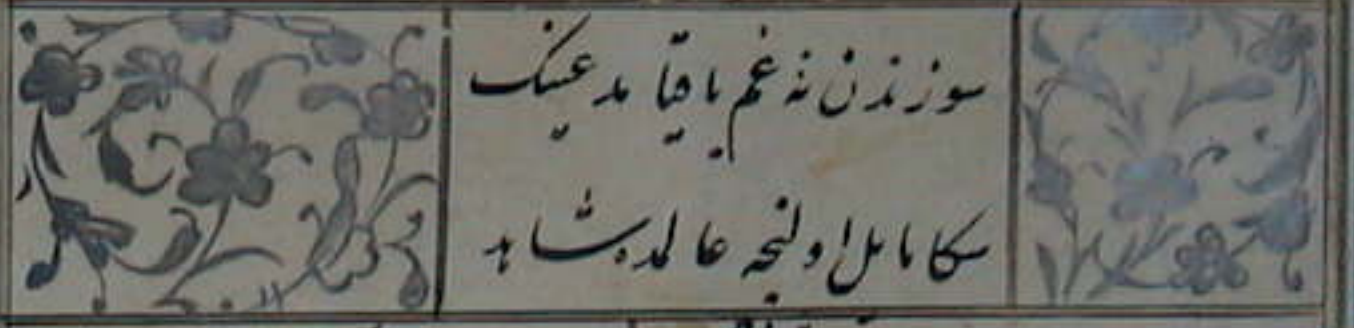 سوزندن نه غم باقیا مدعینک
سکا مایل اولنجه عالمده شاهد